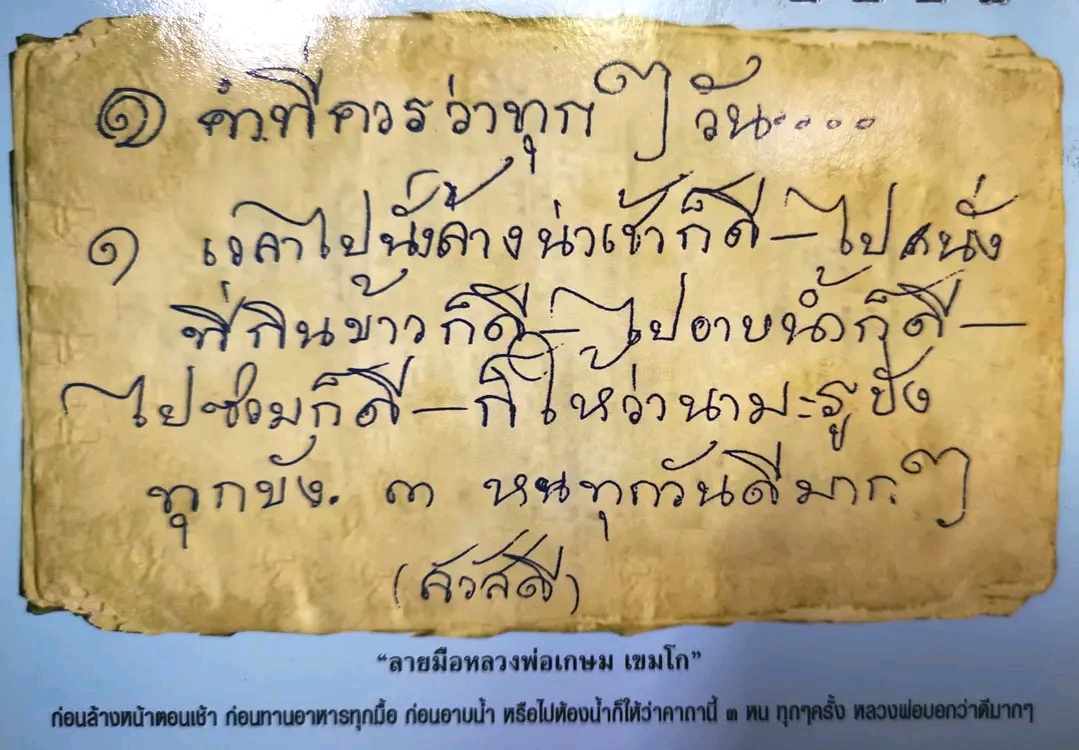 ๑ คำที่ควรว่าทุก ๆ วัน....
๑ เวลาไปนั่งล้างน่าเช้าก็ดี – ไปหนั่ง
ที่กินข้าวก็ดี – ไปอาบน้ำก็ดี –
ไปซ่วมก็ดี – ก็ให้ว่านามะรูปัง
ทุกขัง. ๓ หนทุกวันดีมาก ๆ
(สวัสดี)
“ลายมือหลวงพ่อเกษม เขมโก”
ก่อนล้างหน้าตอนเช้า ก่อนทานอาหารทุกมื้อ ก่อนอาบน้ำ หรือไปห้องน้ำก็ให้ว่าคาถานี้ ๓ หน ทุกๆครั้ง หลวงพ่อบอกว่าดีมากๆ